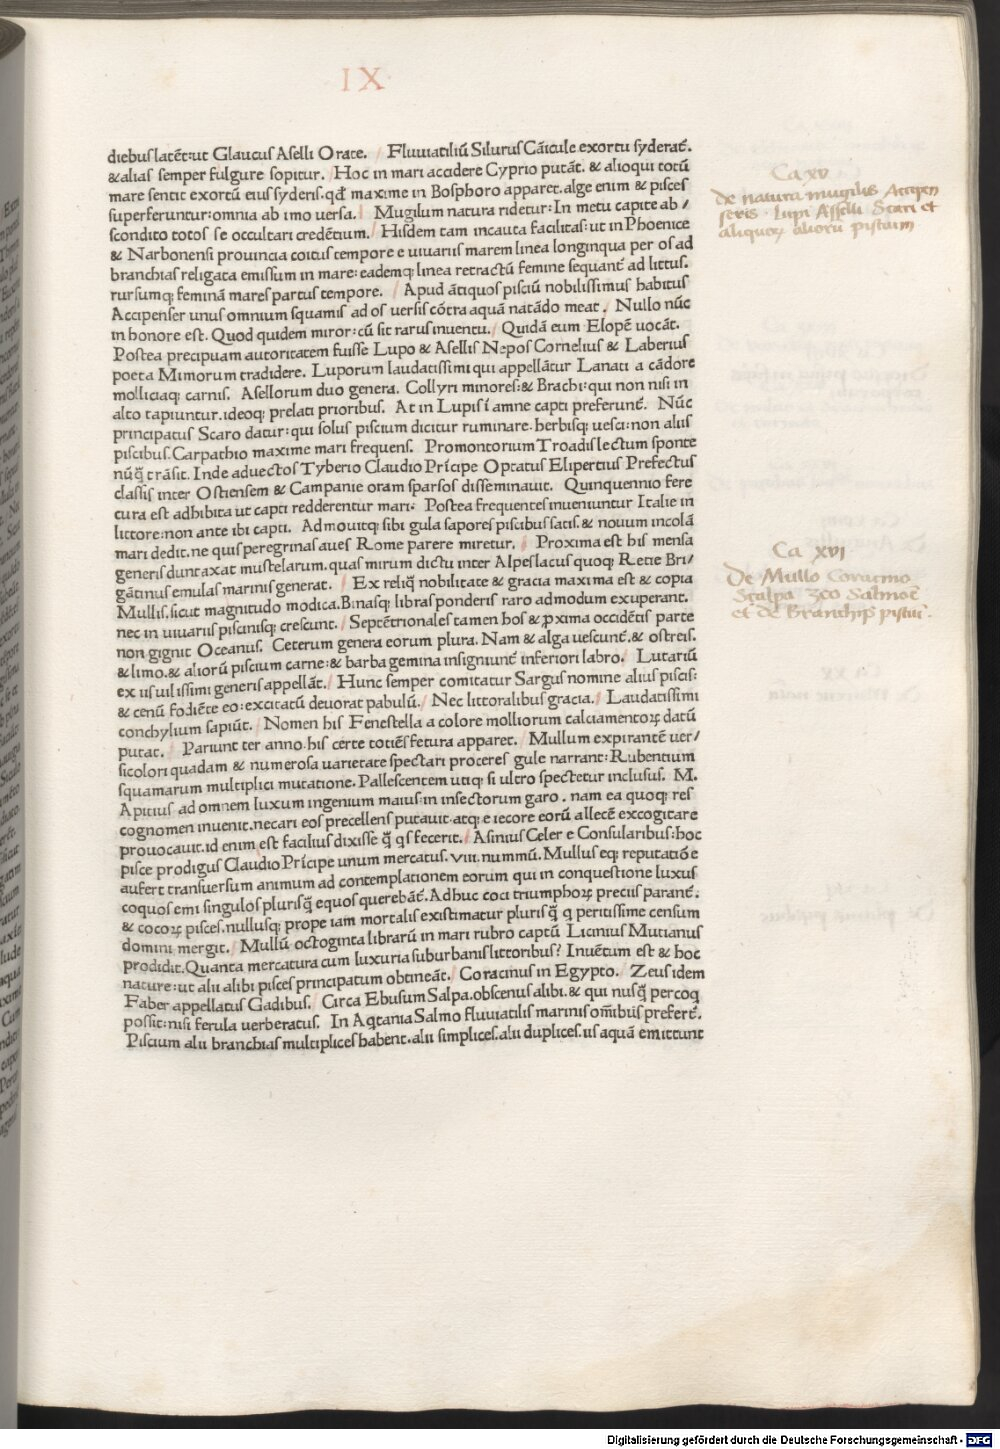 IX
diebus latēt: ut Glaucus Aselli Orate. / Fluuiatiliū Silurus Cāicule exortu syderat̄.
& alias semper fulgure sopitur. / Hoc in mari accidere Cyprio putāt. & alioqui totū
mare sentit exortū eius syderis. qđ maxime in Bosphoro apparet. alge enim & pisces
superferuntur: omnia ab imo uersa. / Mugilum natura ridetur: In metu capite ab/
scondito totos se occultari credētium. / Hisdem tam incauta facilitas: ut in Phoenice
& Narbonensi prouincia coitus tempore e uiuariis marem linea longinqua per os ad
branchias religata emissum in mare: eademq; linea retractū femine sequant̄ ad littus.
rursumq; feminā mares partus tempore. / Apud ātiquos pisciū nobilissimus habitus
Accipenser unus omnium squamis ad os uersis cōtra aquā natādo meat. / Nullo nūc
in honore est. Quod quidem miror: cū sit rarus inuentu. / Quidā eum Elopē uocāt.
Postea precipuam autoritatem fuisse Lupo & Asellis Nepos Cornelius & Laberius
poeta Mimorum tradidere. Luporum laudatissimi qui appellātur Lanati a cādore
molliciaq; carnis. Asellorum duo genera. Collyri minores: & Brachi: qui non nisi in
alto capiuntur. ideoq; prelati prioribus. At in Lupis ī amne capti preferunt̄. Nūc
principatus Scaro datur: qui solus piscium dicitur ruminare: herbisq; uesci: non aliis
piscibus. Carpathio maxime mari frequens. Promontorium Troadis lectum sponte
nūq̄ trāsit. Inde aduectos Tyberio Claudio Prīcipe Optatus Elipertius Prefectus
classis inter Ostiensem & Campanie oram sparsos disseminauit. Quinquennio fere
cura est adhibita ut capti redderentur mari. Postea frequentes inueniuntur Italie in
littore: non ante ibi capti. Admouitq; sibi gula sapores piscibus satis. & nouum incolā
mari dedit. ne quis peregrinas aues Rome parere miretur. / Proxima est his mensa
generis duntaxat mustelarum. quas mirum dictu inter Alpes lacus quoq; Retie Bri/
gātinus emulas marinis generat. / Ex reliq̄ nobilitate & gracia maxima est & copia
Mullis. sicut magnitudo modica. Binasq; libras ponderis raro admodum exuperant.
nec in uiuariis piscinisq; crescunt. / Septētrionales tamen hos & ꝓxima occidētis parte
non gignit Oceanus. Ceterum genera eorum plura. Nam & alga uescunt̄. & ostreis.
& limo. & aliorū piscium carne: & barba gemina insigniunt̄ inferiori labro. / Lutariū
ex iis uilissimi generis appellāt. / Hunc semper comitatur Sargus nomine alius piscis:
& cenū fodiēte eo: excitatū deuorat pabulū. / Nec littoralibus gracia. / Laudatissimi
conchylium sapiūt. / Nomen his Fenestella a colore molliorum calciamentoꝝ datū
putat. / Pariunt ter anno. his certe totiēs fetura apparet. / Mullum expirantē uer/
sicolori quadam & numerosa uarietate spectari proceres gule narrant: Rubentium
squamarum multiplici mutatione. Pallescentem utiq; si ultro spectetur inclusus. M.
Apitius ad omnem luxum ingenium maius: in insectorum garo. nam ea quoq; res
cognomen inuenit. necari eos precellens putauit. atq; e iecore eorū allecē excogitare
prouocauit. id enim est facilius dixisse q̄ qs fecerit. / Asinius Celer e Consularibus: hoc
pisce prodigus Claudio Prīcipe unum mercatus. viii. nummū. Mullus eq; reputatiōe
aufert transuersum animum ad contemplationem eorum qui in conquestione luxus
coquos emi singulos pluris q̄ equos querebāt̄. Adhuc coci triumphoꝝ preciis parant̄:
& cocoꝝ pisces. nullusq; prope iam mortalis existimatur pluris q̄ q peritissime censum
domini mergit. / Mullū octoginta librarū in mari rubro captū Licinius Mutianus
prodidit. Quanta mercatura cum luxuria suburbanis littoribus? Inuētum est & hoc
nature: ut alii alibi pisces principatum obtineāt. / Coracinus in Egypto. / Zeus idem
Faber appellatus Gadibus. / Circa Ebusum Salpa. obscenus alibi. & qui nusq̄ percoq
possit: nisi ferula uerberatus. In Aqtania Salmo fluuiatilis marinis om̄ibus prefert̄.
Piscium alii branchias multiplices habent. alii simplices. alii duplices. iis aquā emittunt
Ca xv
de natura mugilis Accipen
seris. Lupi Asselli Scari et
aliquoꝝ alioru pisciuim
Ca xvi
De Mullo Coracino
Stalpa zeo Salmoē
et de Branchijs pisciū.
Digitalisierung gefördert durch die Deutsche Forschungsgemeinschaft - DFG